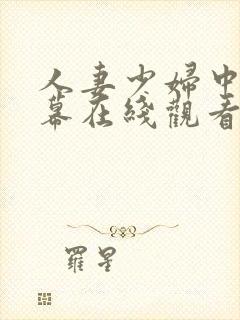 人妻少婦中
幕在綫觀看
羅星